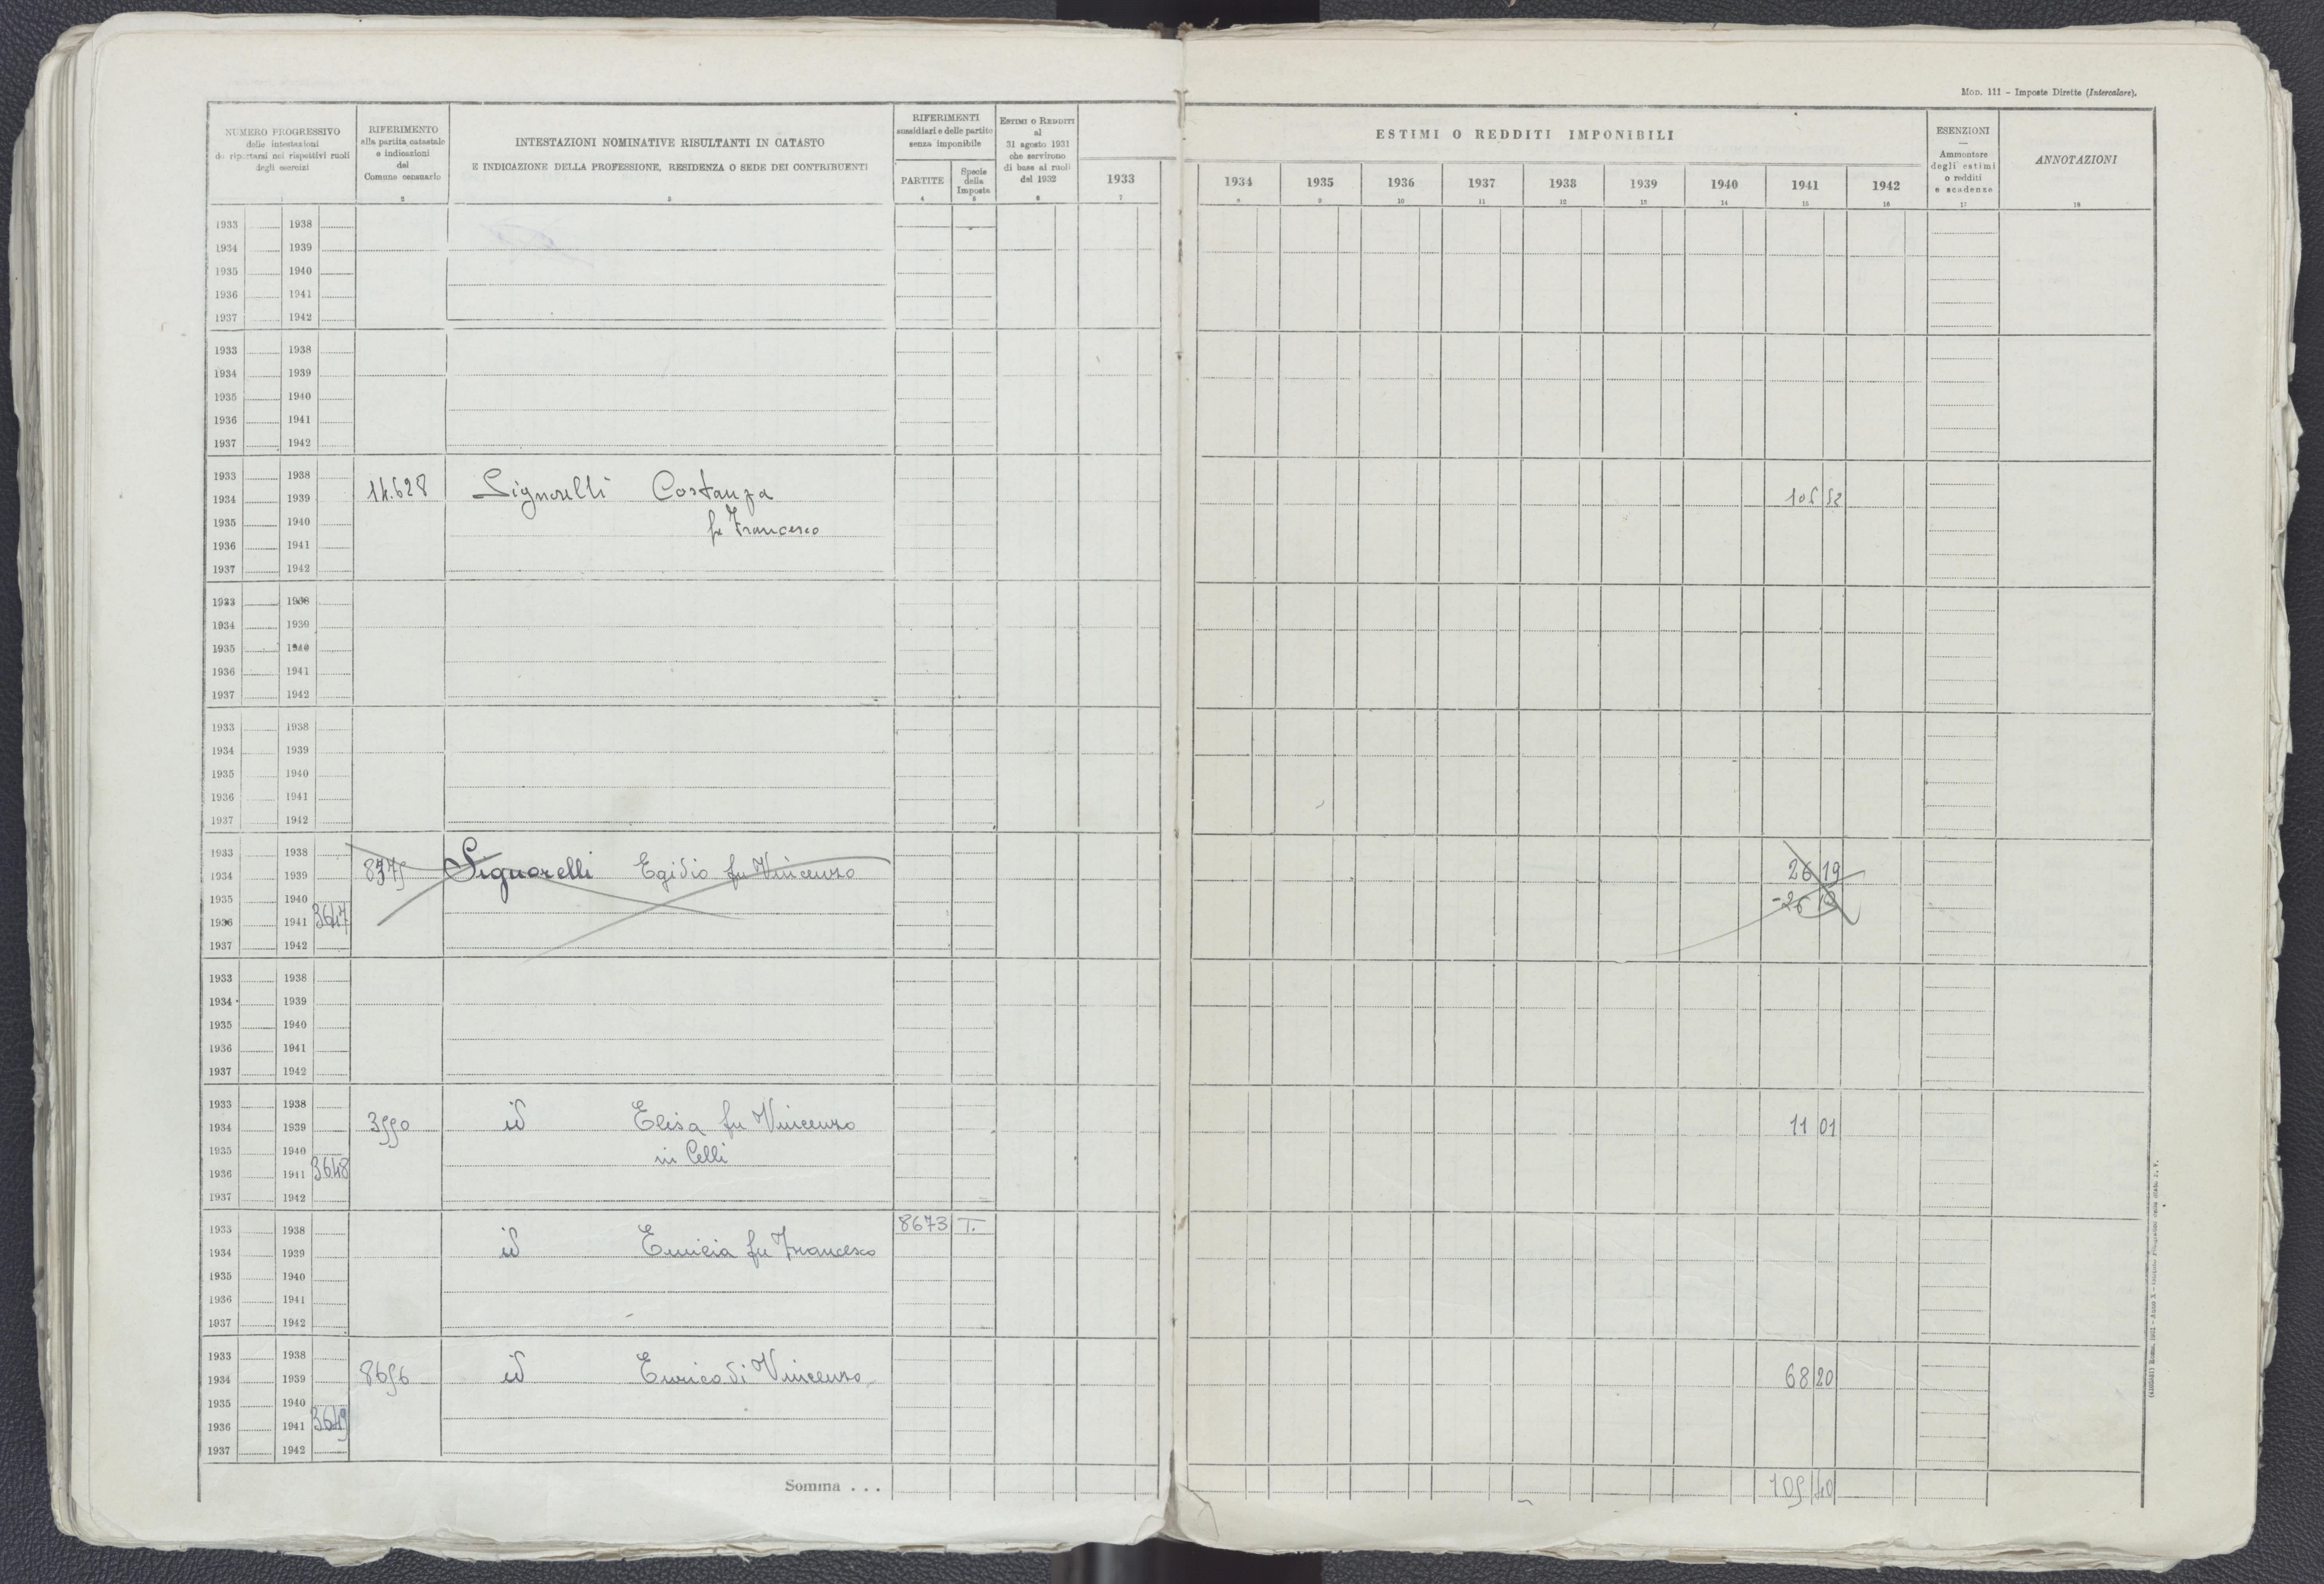 Mod. 111 - Imposte Dirette (Intercalare).
NUMERO PROGRESSIVO
delle intestazioni
da riportarsi nei rispettivi ruoli
degli esercizi
1
RIFERIMENTO
alla partita catastale
e indicazioni
del
Comune censuario
2
INTESTAZIONI NOMINATIVE RISULTANTI IN CATASTO
E INDICAZIONE DELLA PROFESSIONE, RESIDENZA O SEDE DEI CONTRIBUENTI
3
RIFERIMENTI
sussidiari e delle partite
senza imponibile
PARTITE
4
Specie
della
Imposta
5
ESTIMI O REDDITI
al
31 agosto 1931
che servirono
di base ai ruoli
del 1932
6
ESTIMI O REDDITI IMPONIBILI
1933 1934 1935 1936 1937 1938 1939 1940 1941 1942
7 8 9 10 11 12 13 14 15 16
ESENZIONI
Ammontare
degli estimi
o redditi
e scadenze
17
ANNOTAZIONI
18
1933 1938
1934 1939
1935 1940
1936 1941
1937 1942
1933 1938
1934 1939
1935 1940
1936 1941
1937 1942
1933 1938
1934 1939 14.628 Signorelli Costanza
1935 1940 fu Francesco
1936 1941
1937 1942
1933 1938
1934 1930
1935 1940
1936 1941
1937 1942
1933 1938
1934 1939
1935 1940
1936 1941
1937 1942
1933 1938
1934 1939 Signorelli Egidio fu Vincenzo 26 19
1935 1940 -26 19
1936 1941 3647
1937 1942
1933 1938
1934 1939
1935 1940
1936 1941
1937 1942
1933 1938
1934 1939 3550 id Elisa fu Vincenzo 11 01
1935 1940 in Celli
1936 1941 3648
1937 1942
1933 1938 8673 T.
1934 1939 id Ermicia fu Francesco
1935 1940
1936 1941
1937 1942
1933 1938
1934 1939 8656 id Enrico di Vincenzo 68 20
1935 1940
1936 1941 3649
1937 1942
Somma . . . 105 40